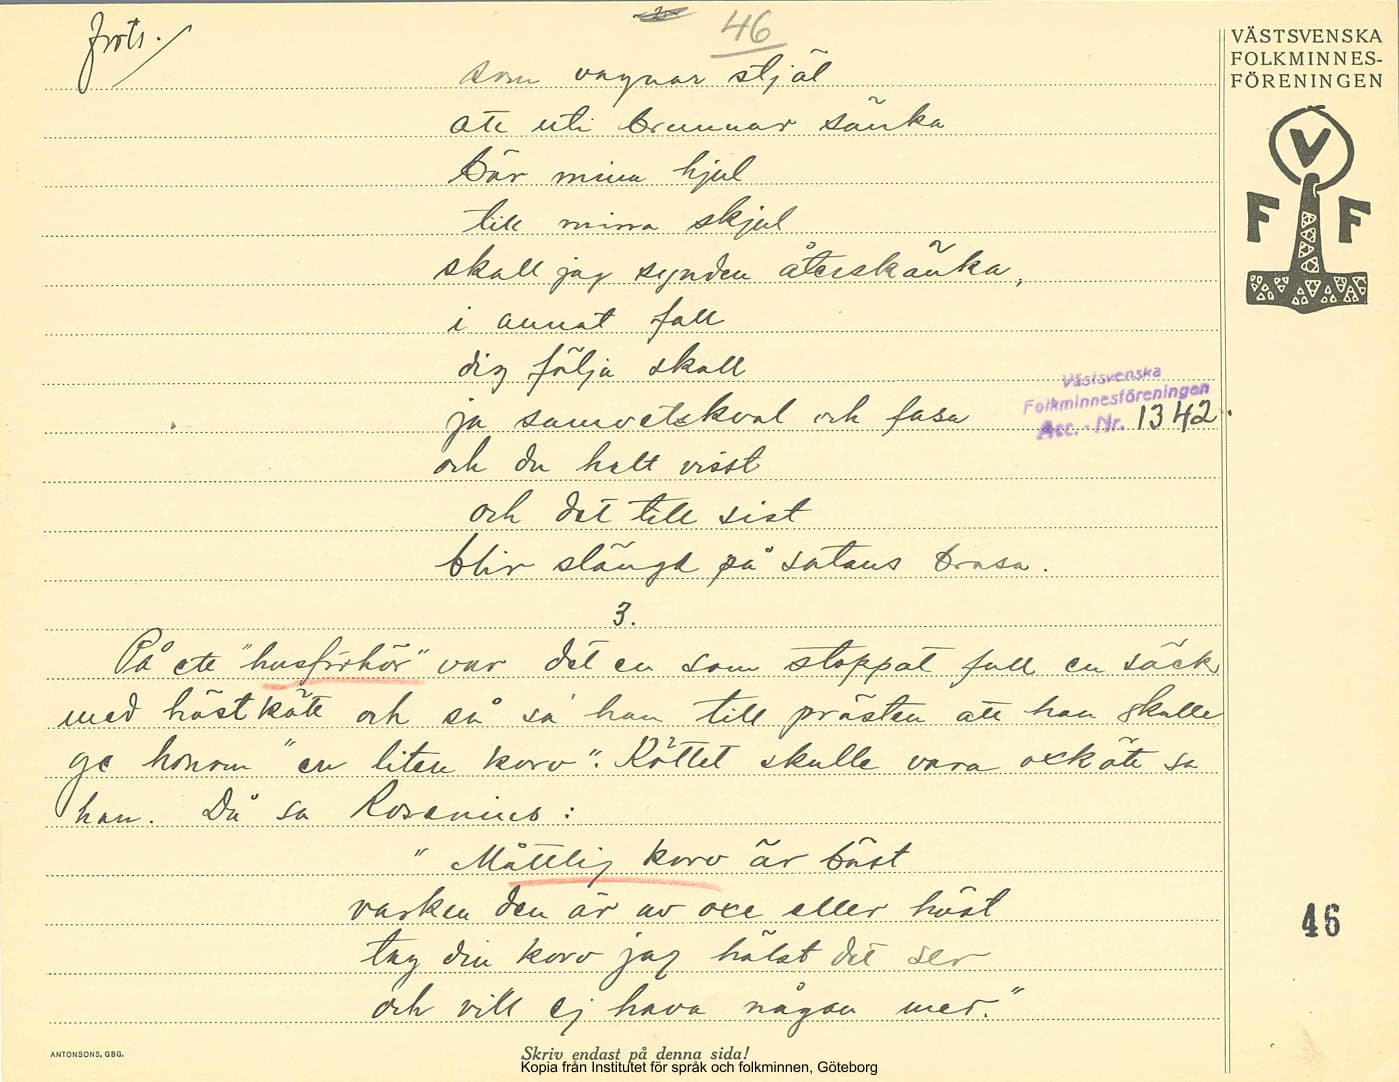 frots.
46
VÄSTSVENSKA
FOLKMINNES-
FÖRENINGEN
V
F F
som vagnar stjäl
att uti brunnar sänka
bär mina hjul
till mina skjul
skall jag synden återskänka,
i annat fall
dig följa skall
ja samvetskval och fasa
Västsvenska
Folkminnesföreningen
Acc. - Nr. 1342.
och du halt visst
och det till sist
blir slängd på satans brasa.
3.
På ett "husförhör" var det en som stoppat full en säck
med hästkött och så sa han till prästen att han skulle
ge honom "en liten korv". Köttet skulle vara oxkött sa
han. Då sa Rosenius:
" Måttlig korv är bäst
varken den är av oxe eller häst
tag din korv jag hälst det ser
och vill ej hava någon mer."
46
ANTONSONS, GBG.
Skriv endast på denna sida!
Kopia från Institutet för språk och folkminnen, Göteborg